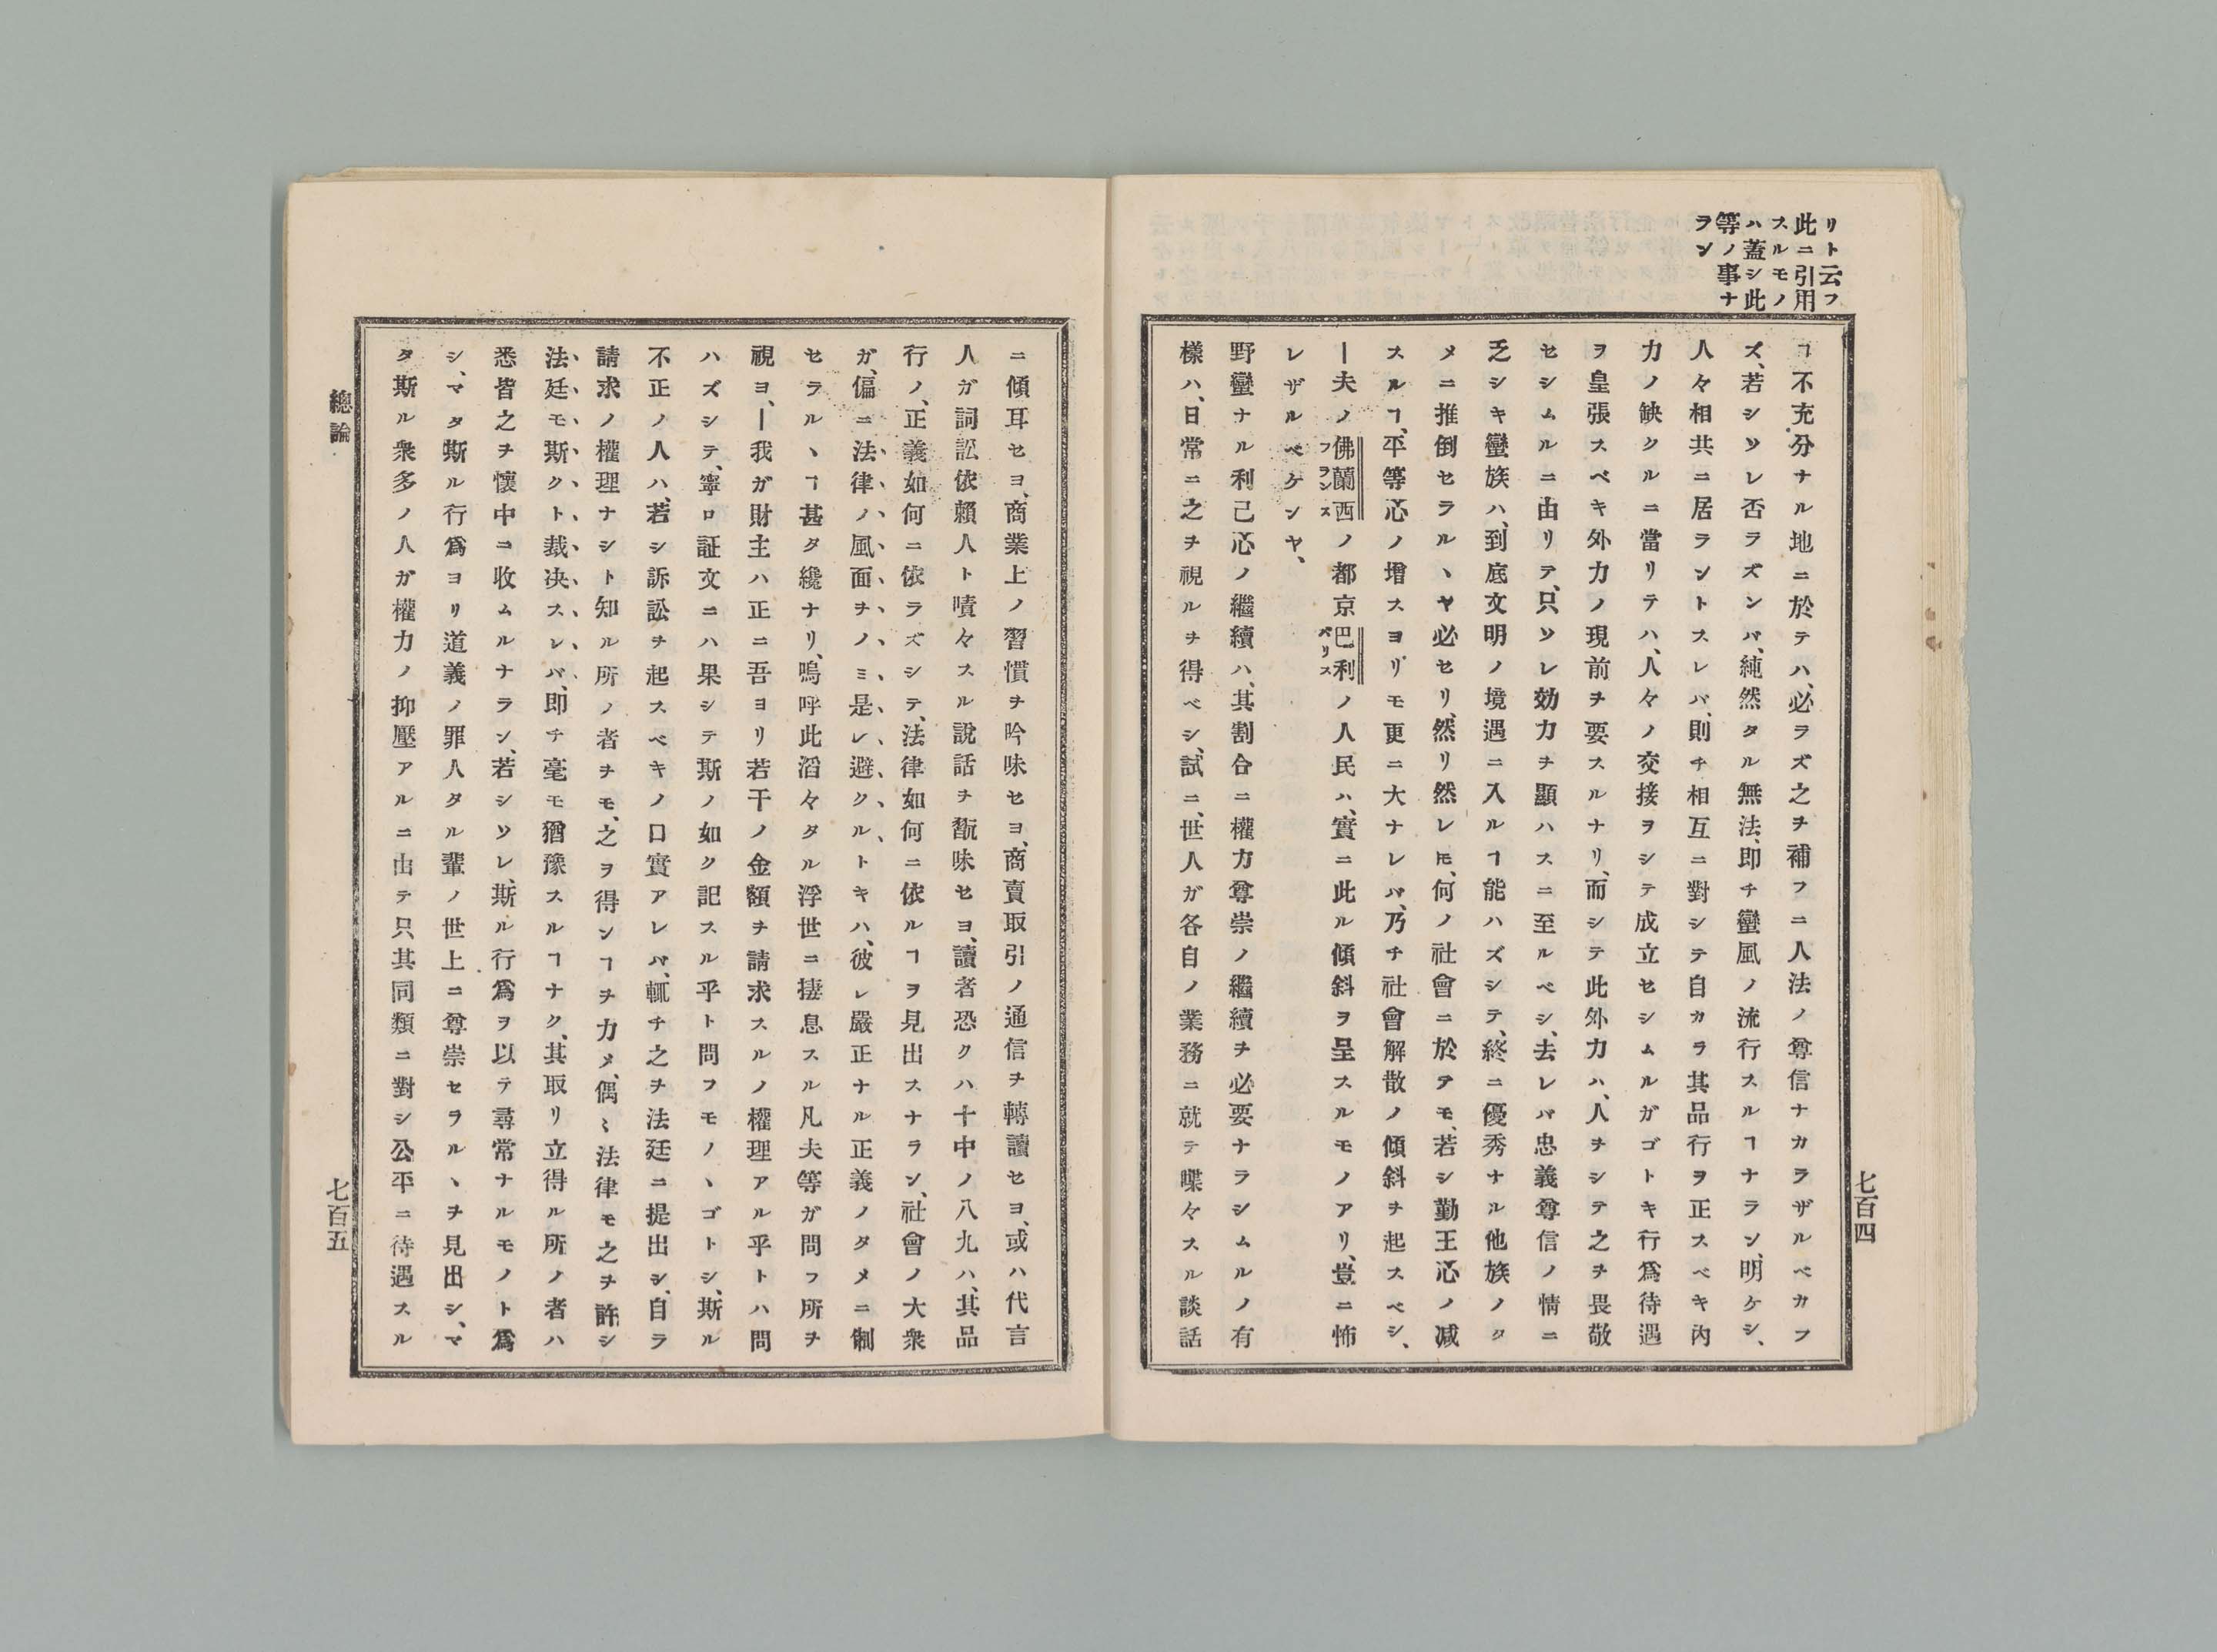 リト云フ
此ニ引用
スルモノ
ハ蓋シ此
等ノ事ナ
ラン
ヿ不充分ナル地ニ於テハ、必ラズ之ヲ補フニ人法ノ尊信ナカラザルベカフ
ズ、若シソレ否ラズンバ、純然タル無法、即チ蠻風ノ流行スルヿナラン、明ケシ、
人々相共ニ居ラントスレバ、則チ相互ニ對シテ自カラ其品行ヲ正スベキ內
力ノ缺クルニ當リテハ、人々ノ交接ヲシテ成立セシムルガゴトキ行爲待遇
ヲ皇張スベキ外力ノ現前ヲ要スルナリ、而シテ此外力ハ、人ヲシテ之ヲ畏敬
セシムルニ由リテ、只ソレ効力ヲ顯ハスニ至ルベシ、去レバ忠義尊信ノ情ニ
乏シキ蠻族ハ、到底文明ノ境遇ニ入ルヿ能ハズシテ、終ニ優秀ナル他族ノタ
メニ推倒セラルヽヤ必セリ、然リ然レ𪜈、何ノ社會ニ於テモ、若シ勤王心ノ减
スルヿ、平等心ノ增スヨリモ更ニ大ナレバ、乃チ社會解散ノ傾斜ヲ起スベシ、
―夫ノ佛蘭西ノ都京巴利ノ人民ハ、實ニ此ル傾斜ヲ呈スルモノアリ、豈ニ怖
フランス
パリス
レザルベケンヤ、
野蠻ナル利己心ノ繼續ハ、其割合ニ權力尊崇ノ繼續ヲ必要ナラシムルノ有
樣ハ、日常ニ之ヲ視ルヲ得ベシ、試ニ、世人ガ各自ノ業務ニ就テ喋々スル談話
七百四
ニ傾耳セヨ、商業上ノ習慣ヲ吟味セヨ、商賣取引ノ通信ヲ轉讀セヨ、或ハ代言
人ガ詞訟依賴人ト嘖々スル說話ヲ翫味セヨ、讀者恐クハ十中ノ八九ハ、其品
行ノ、正義如何ニ依ラズシテ、法律如何ニ依ルヿヲ見出スナラン、社會ノ大衆
ガ、偏ニ法律ノ風面ヲノミ是レ避クルトキハ、彼レ嚴正ナル正義ノタメニ制
セラルヽヿ甚タ纔ナリ、嗚呼此滔々タル浮世ニ棲息スル凡夫等ガ問フ所ヲ
視ヨ、―我ガ財主ハ正ニ吾ヨリ若干ノ金額ヲ請求スルノ權理アル乎トハ問
ハズシテ、寧ロ証文ニハ果シテ斯ノ如ク記スル乎ト問フモノヽゴトシ、斯ル
不正ノ人ハ、若シ訴訟ヲ起スベキノ口實アレバ、輒チ之ヲ法廷ニ提出シ、自ラ
請求ノ權理ナシト知ル所ノ者ヲモ、之ヲ得ンヿヲ力メ、偶〻法律モ之ヲ許シ
法廷モ斯クト裁决スレバ、即チ毫モ猶豫スルヿナク、其取リ立得ル所ノ者ハ
悉皆之ヲ懷中ニ收ムルナラン、若シソレ、斯ル行爲ヲ以テ尋常ナルモノト爲
シ、マタ斯ル行爲ヨリ道義ノ罪人タル輩ノ世上ニ尊崇セラルヽヲ見出シ、マ
タ斯ル衆多ノ人ガ權力ノ抑壓アルニ由テ只其同類ニ對シ公平ニ待遇スル
總論
七百五